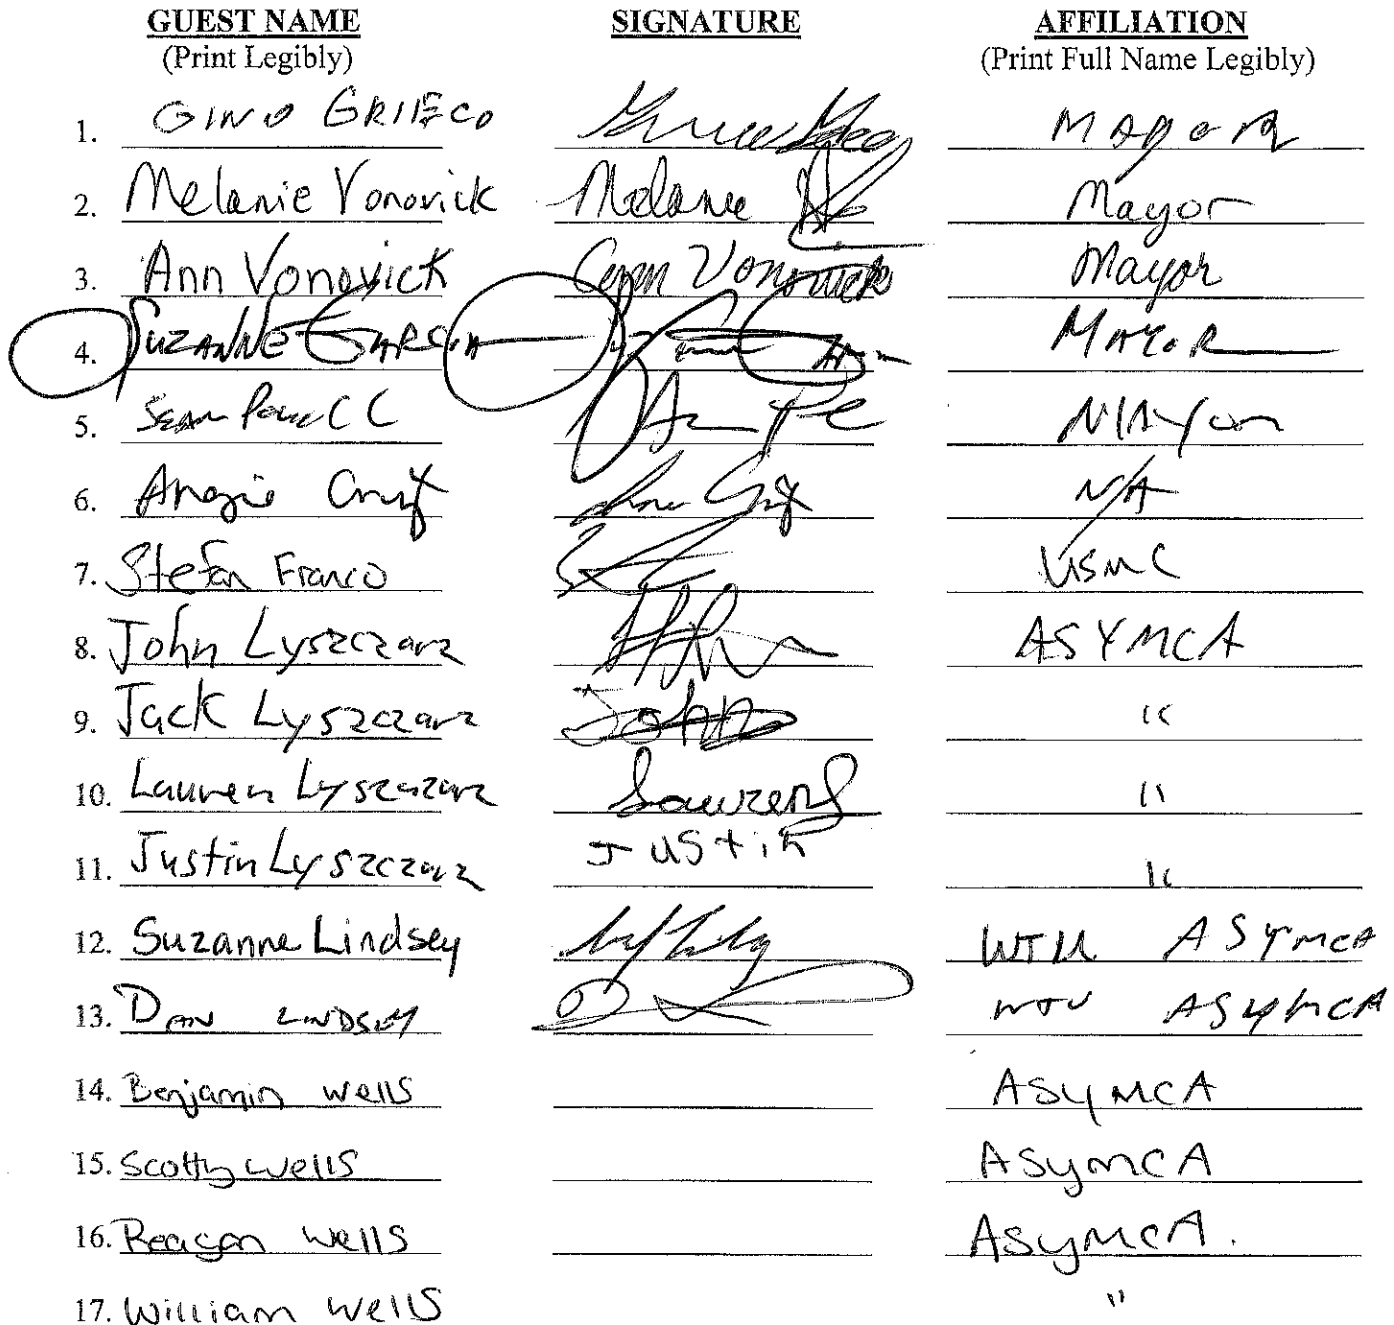 GUEST NAME SIGNATURE AFFILIATION
(Print Legibly) (Print Full Name Legibly)
1. GINO GRIIECO MAYOR
2. Melanie Vonovick Melanie Mayor
3. Ann Vonovick Ann Vonovick Mayor
4. SUZANNE GARCIA MAYOR
5. Sean MAYOR
6. Angie Cruz N/A
7. Stefan Franco USMC
8. John Lyszczarz ASYMCA
9. Jack Lyszczarz John "
10. Lauren Lyszczarz Lauren "
11. Justin Lyszczarz Justin "
12. Suzanne Lindsey WTU ASYMCA
13. DAN LINDSEY WTU ASYMCA
14. Benjamin Wells ASYMCA
15. Scotty Wells ASYMCA
16. Reagan Wells ASYMCA.
17. William Wells "